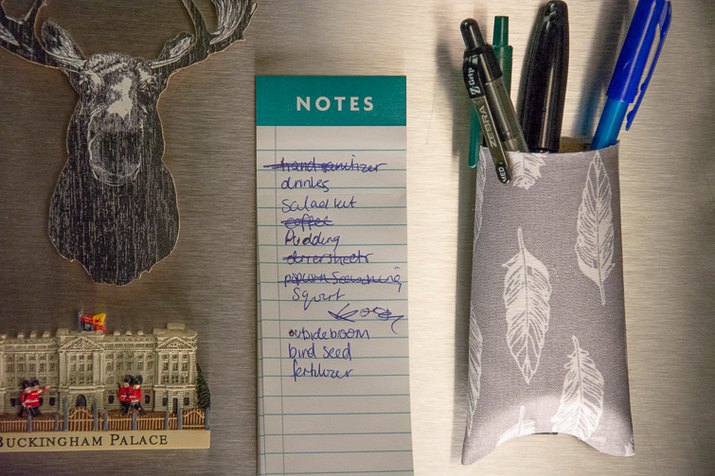 NOTES
hand sanitizer
drinks
Salad kit
coffee
Pudding
dryer sheets
popcorn seasoning
Squirt
outside broom
bird seed
fertilizer
BUCKINGHAM PALACE
ZEBRA